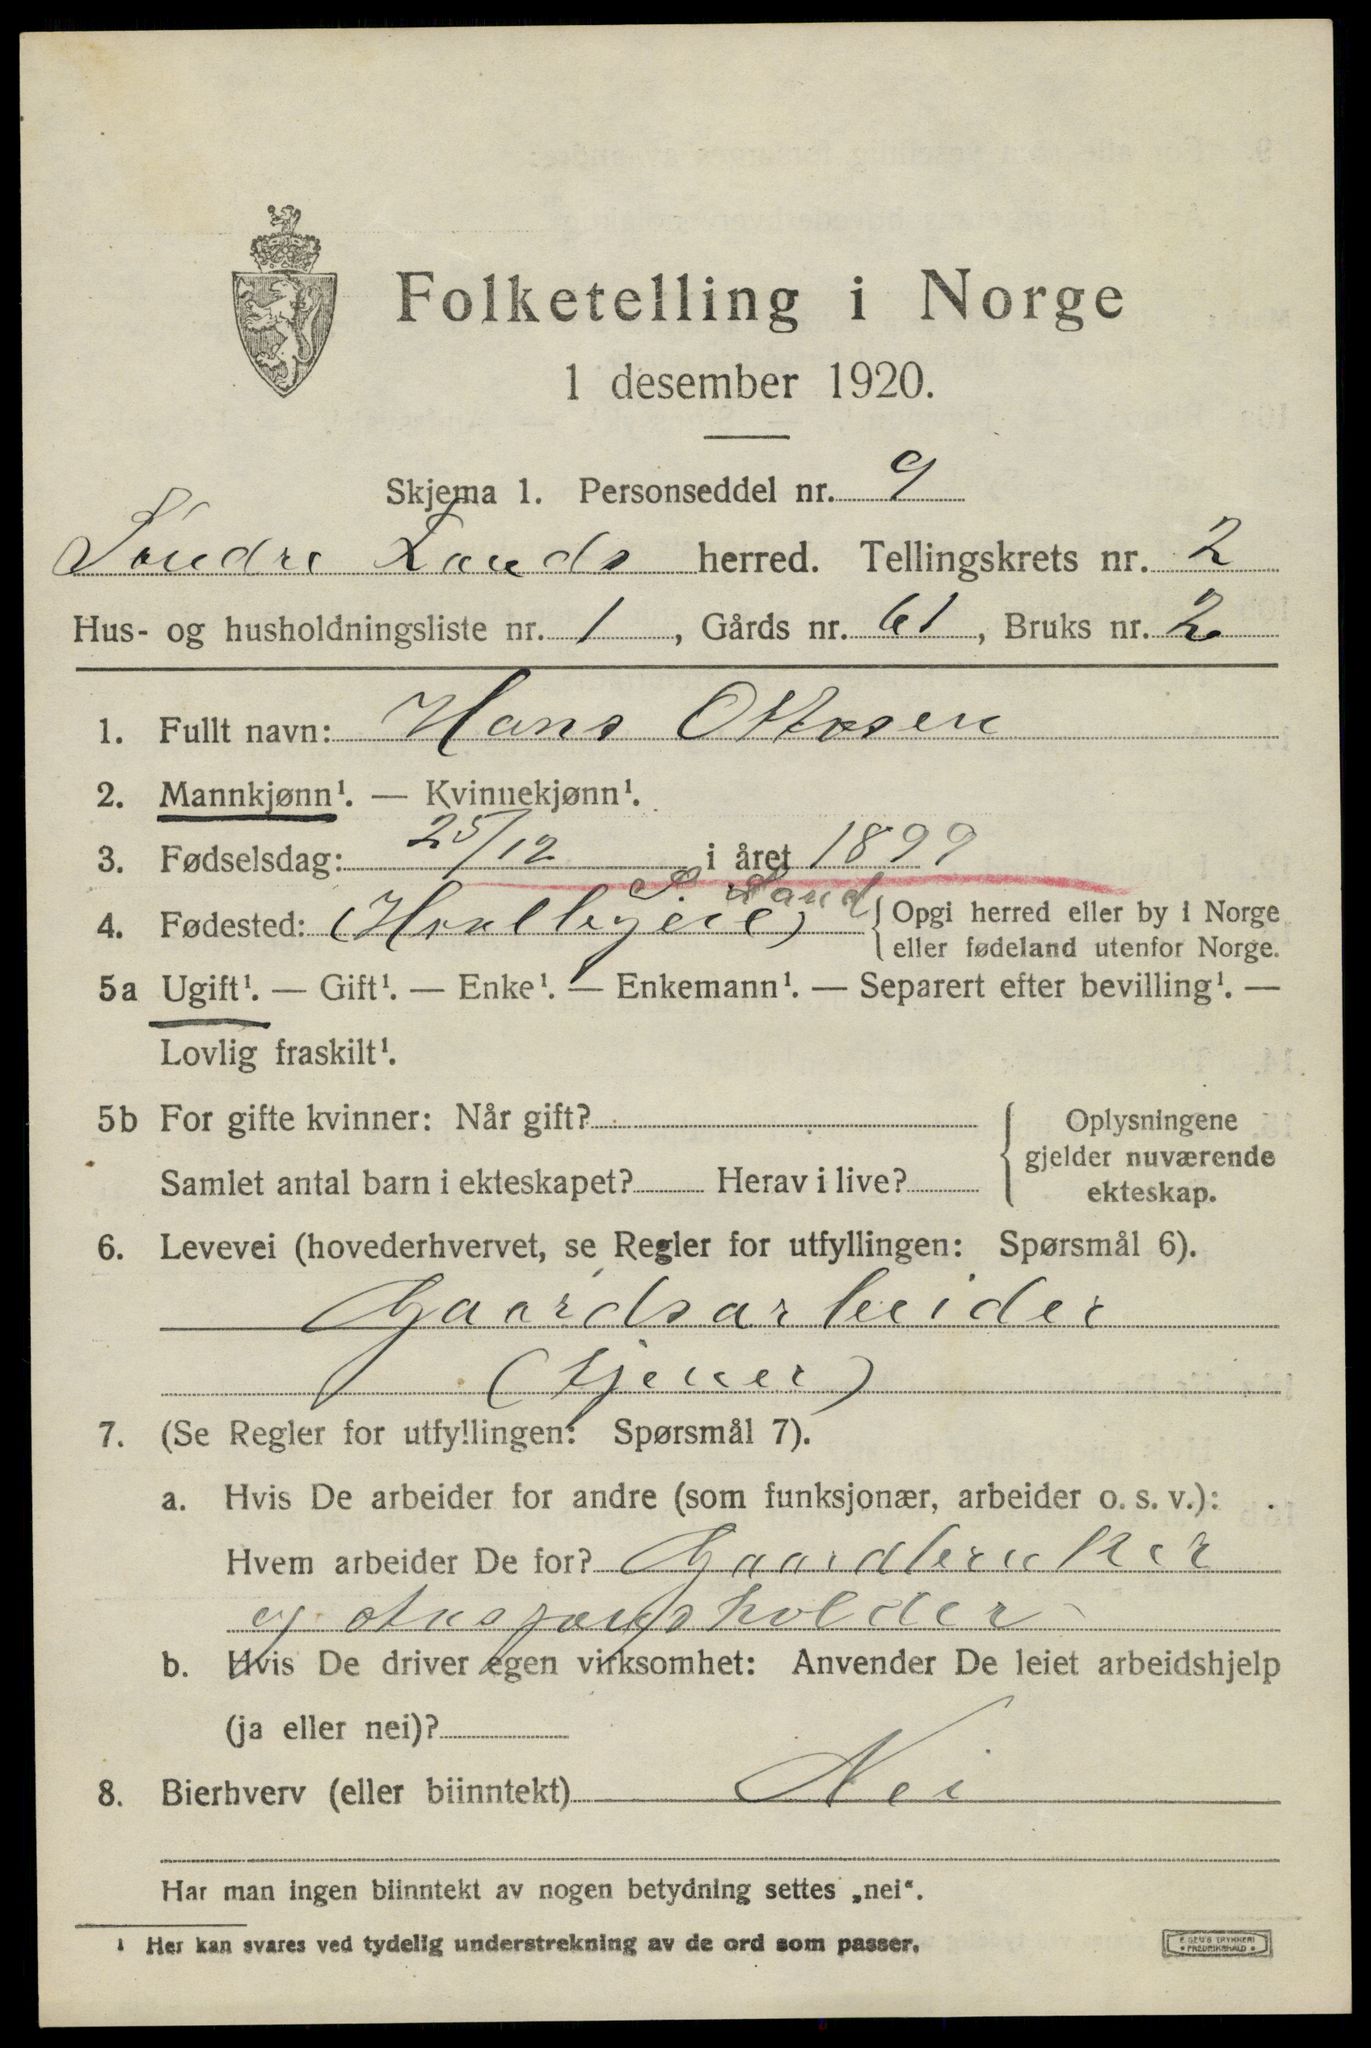 Folketelling i Norge
1 desember 1920.
Skjema 1. Personseddel nr. 9
Søndre Lands herred. Tellingskrets nr. 2
Hus- og husholdningsliste nr. 1, Gårds nr. 61, Bruks nr. 2
1. Fullt navn: Hans Ottosen
2. Mannkjønn¹. — Kvinnekjønn¹.
3. Fødselsdag: 25/12 i året 1899
S. Land
4. Fødested: (Hvalbyeie) {Opgi herred eller by i Norge
eller fødeland utenfor Norge.
5a Ugift¹. — Gift¹. — Enke¹. — Enkemann¹. — Separert efter bevilling¹. —
Lovlig fraskilt¹.
5b For gifte kvinner: Når gift? { Oplysningene
gjelder nuværende
ekteskap.
Samlet antal barn i ekteskapet? Herav i live?
6. Levevei (hovederhvervet, se Regler for utfyllingen: Spørsmål 6).
Gaardsarbeider
(tjener)
7. (Se Regler for utfyllingen: Spørsmål 7).
a. Hvis De arbeider for andre (som funksjonær, arbeider o. s. v.):
Hvem arbeider De for? Gaardbruker
og otaspangsholder
b. Hvis De driver egen virksomhet: Anvender De leiet arbeidshjelp
(ja eller nei)?
8. Bierhverv (eller biinntekt) Nei
Har man ingen biinntekt av nogen betydning settes „nei“.
¹ Her kan svares ved tydelig understrekning av de ord som passer.